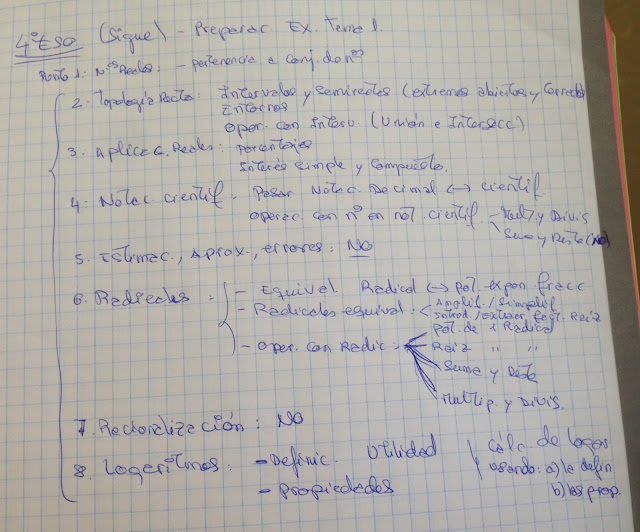 4º ESO (Sigue) - Preparac. Ex. Tema 1.
Punto 1: N.ºs Reales: - pertenencia a conj. de nºs
2. Topología Recta: Intervalos y semirrectas (extremos abiertos y cerrados)
Entornos
Oper. con Interv. (Unión e Intersecc)
3. Aplicac. Reales: Porcentajes
Interés simple y compuesto.
4. Notac científ: Pasar Notac. Decimal ↔ científ
operac. con nº en not. científ - Mult y Divis
Suma y Resta (NO)
5. Estimac., Aprox., errores: NO
6. Radicales: - Equival Radical ↔ pot. expon. fracc
- Radicales equival: Amplif. / Simplif
Introd. / Extraer fact. Raíz
- Oper. con Radic: pot. de 1 Radical
Raíz " "
Suma y Resta
Multip. y Divis.
7. Racionalización: NO
8. Logaritmos: - Definic. Utilidad
- Propiedades
Cálc. de logas
usando: a) la defin
b) las prop.